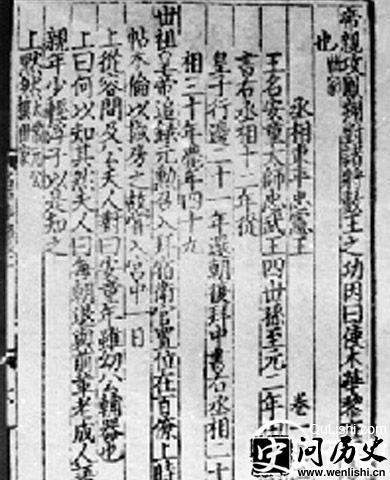 帝親攻鳳翔對諸將數王之功因曰使木華黎
也世家
丞相東平忠憲王
王名安童太師忠武王四世孫至元二年
書右丞相十二年從
皇子行邊二十一年還朝復拜中書右丞相二十
相三十年薨年四十九
世祖皇帝追錄元勳召入拜宿衛官位在百僚上時
帖木倫以掖房之故常入宮中一日
上從容問及公夫人對曰安童年雖幼公輔器也
上曰何以知其然夫人曰每朝退與前輩老成人語
親年少輕浮子以是知之
上默然
卷
史问历史
www.wenlishi.cn